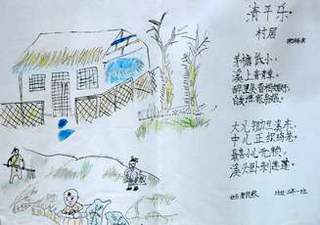 清平乐。
村居
茅檐低小，
溪上青青草。
醉里吴音相媚好，
白发谁家翁媪。
大儿锄豆溪东，
中儿正织鸡笼。
最喜小儿无赖，
溪头卧剥莲蓬。